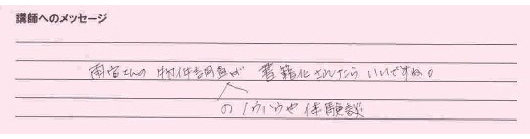 講師へのメッセージ
雨宮さんの 物件調査が 書籍化されたら いいですね。
のノウハウや 体験談